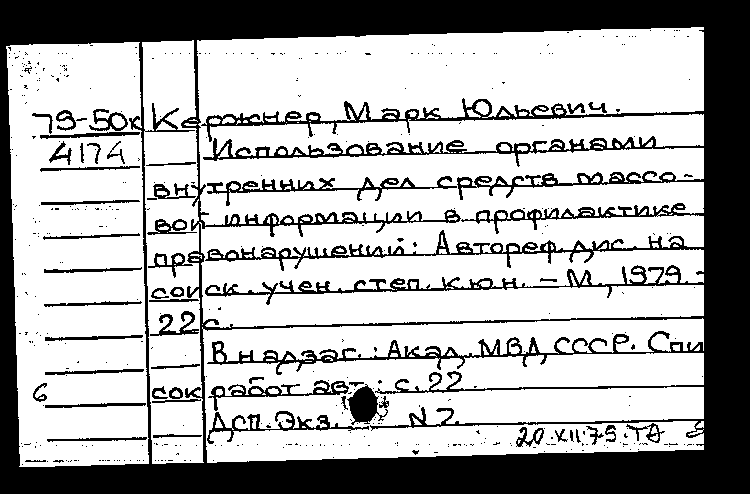 79-50к Кержнер, Марк Юльевич.
4174 Использование органами
внутренних дел средств массо-
вой информации в профилактике
правонарушений: Автореф. дис. на
соиск. учен. степ. к.ю.н. - М., 1979. -
22 с.
В надзаг.: Акад. МВД СССР. Спи
6 сок работ авт.: с. 22.
ДСП. Экз. N 7.
20.XII.79.ТА